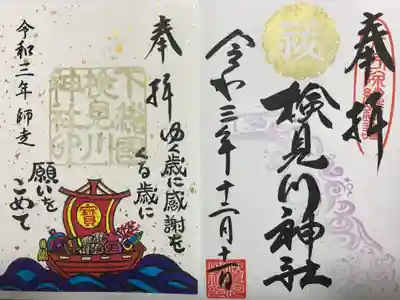 奉拝
検見川神社
令和三年十二月十二日
奉拝
下総国
検見川
神社印
ゆく歳に感謝を
くる歳に
願いを
こめて
令和三年 師走
寳